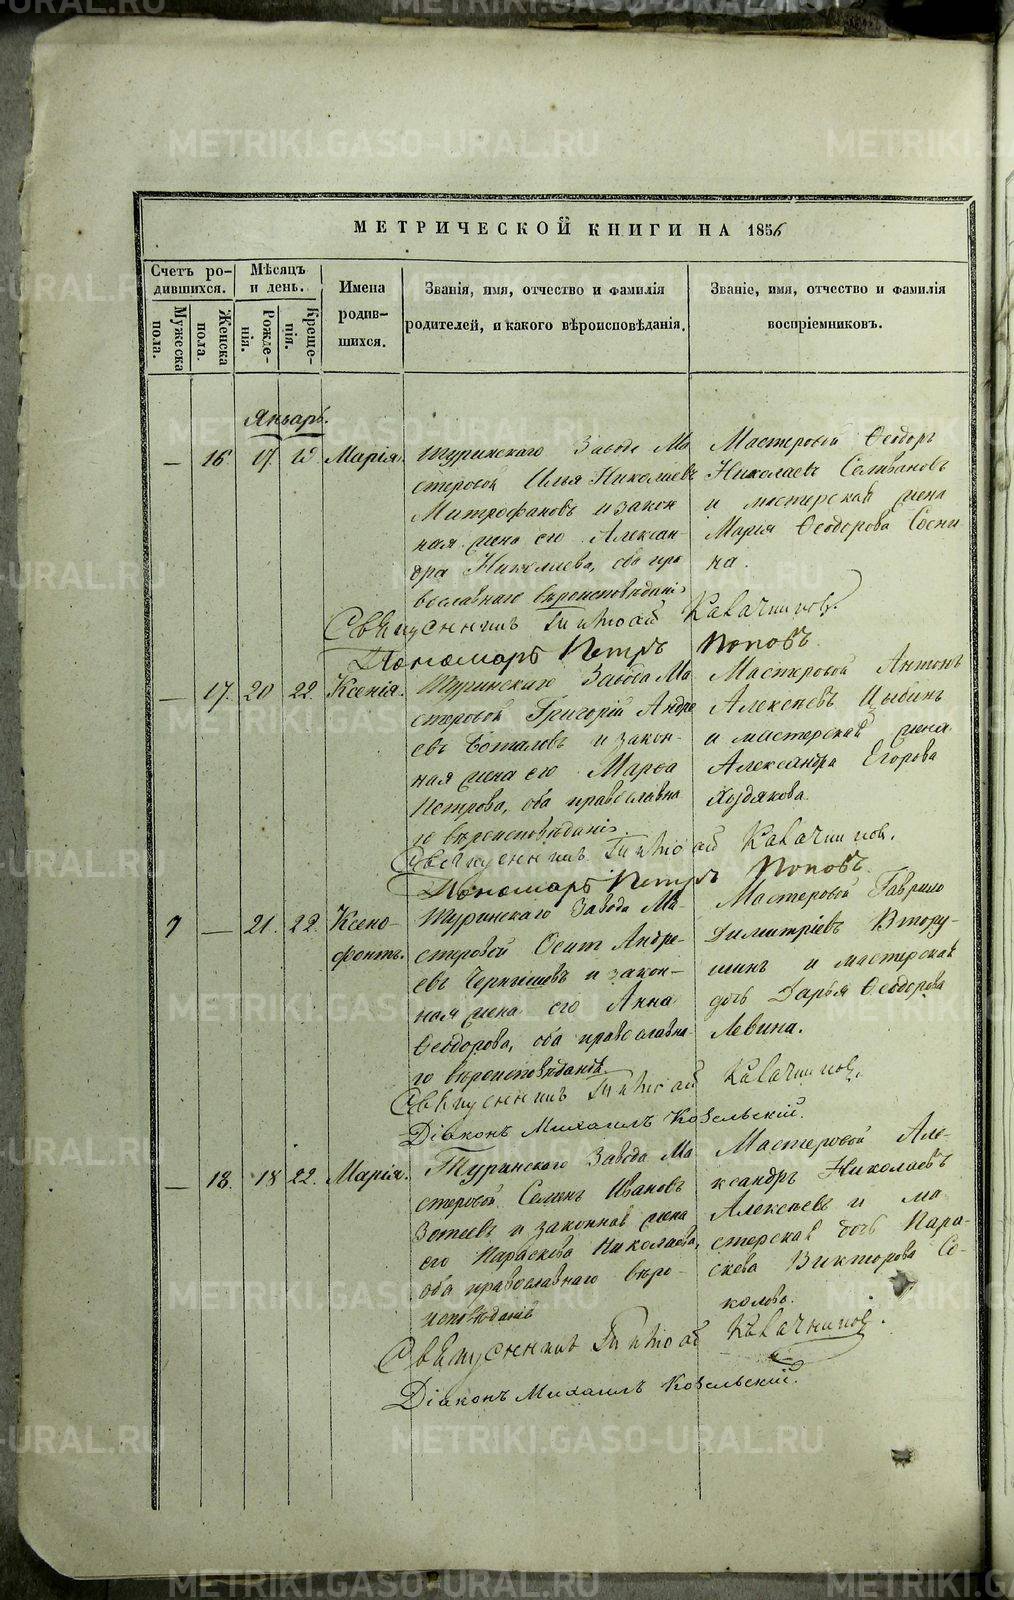 METRIKI.GASO-URAL.RU
МЕТРИЧЕСКОЙ КНИГИ НА 1856
Счетъ ро-
дившихся.
Мужеска
пола.
Женска
пола.
Мѣсяцъ
и день.
Рожде-
нія.
Креще-
нія.
Имена
родив-
шихся.
Званія, имя, отчество и фамилія
родителей, и какого вѣроисповѣданія.
Званіе, имя, отчество и фамилія
воспріемниковъ.
Январь.
— 16 17 Марія.
Туринскаго Завода Ма
стеровой Илья Николаевъ
Митрофановъ и закон
ная жена его Алексан
дра Николаева, оба пра
вославнаго вѣроисповѣданія
Мастеровой Ѳеодоръ
Николаевъ Селивановъ
и мастерская жена
Марія Ѳеодорова Сосни
на.
Священникъ Тимоѳей
Пономарь Петръ Поповъ.
— 17. 20 22. Ксенія.
Туринскаго Завода Ма
стеровой Григорій Андре
евъ Боталовъ и закон-
ная жена его Марѳа
Петрова, оба православна
го вѣроисповѣданія.
Мастеровой Антонъ
Алексѣевъ Цыбинъ
и мастерская жена
Александра Егорова
Худякова.
Священникъ Тимоѳей
Пономарь Петръ Поповъ.
7 — 21. 22. Ксено-
фонтъ.
Туринскаго Завода Ма-
стеровой Осипъ Андре-
евъ Чернышевъ и закон-
ная жена его Анна
Ѳеодорова, оба православна
го вѣроисповѣданія.
Мастеровой Гаврило
Димитріевъ Втору-
шинъ и мастерская
дочь Дарья Ѳеодорова
Левина.
Священникъ Тимоѳей
Діаконъ Михаилъ Козельскій.
— 18. 18 22. Марія.
Туринскаго Завода Ма
стеровой Семенъ Ивановъ
Зотеевъ и законная жена
его Параскева Николаева,
оба православнаго вѣро-
исповѣданія
Мастеровой Але-
ксандръ Николаевъ
Алексѣевъ и ма
стерская дочь Пара-
скева Викторова Со-
колова.
Священникъ Тимоѳей
Діаконъ Михаилъ Козельскій.